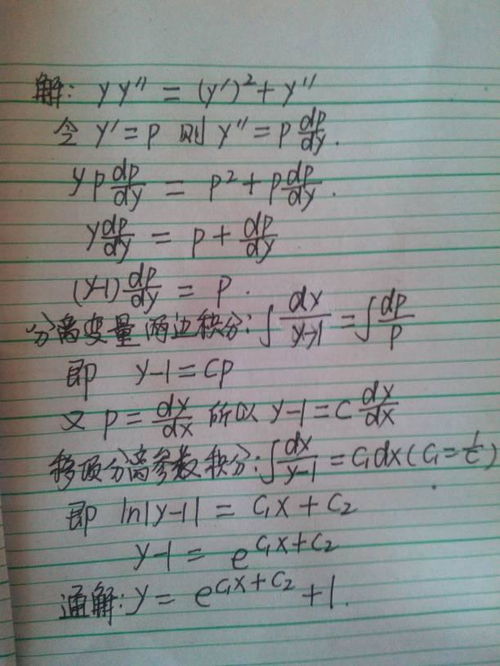 解: yy″ = (y′)²+y″
令 y′=p 则 y″=p dp/dy.
yp dp/dy = p²+p dp/dy.
y dp/dy = p + dp/dy
(y-1) dp/dy = p.
分离变量 两边积分: ∫ dy/(y-1) = ∫ dp/p
即 y-1=cp
又 p = dy/dx 所以 y-1=c dy/dx
移项分离参数积分: ∫ dy/(y-1) = c₁dx (c₁=1/c)
即 ln|y-1| = c₁x+c₂
y-1 = e^(c₁x+c₂)
通解: y = e^(c₁x+c₂) +1.